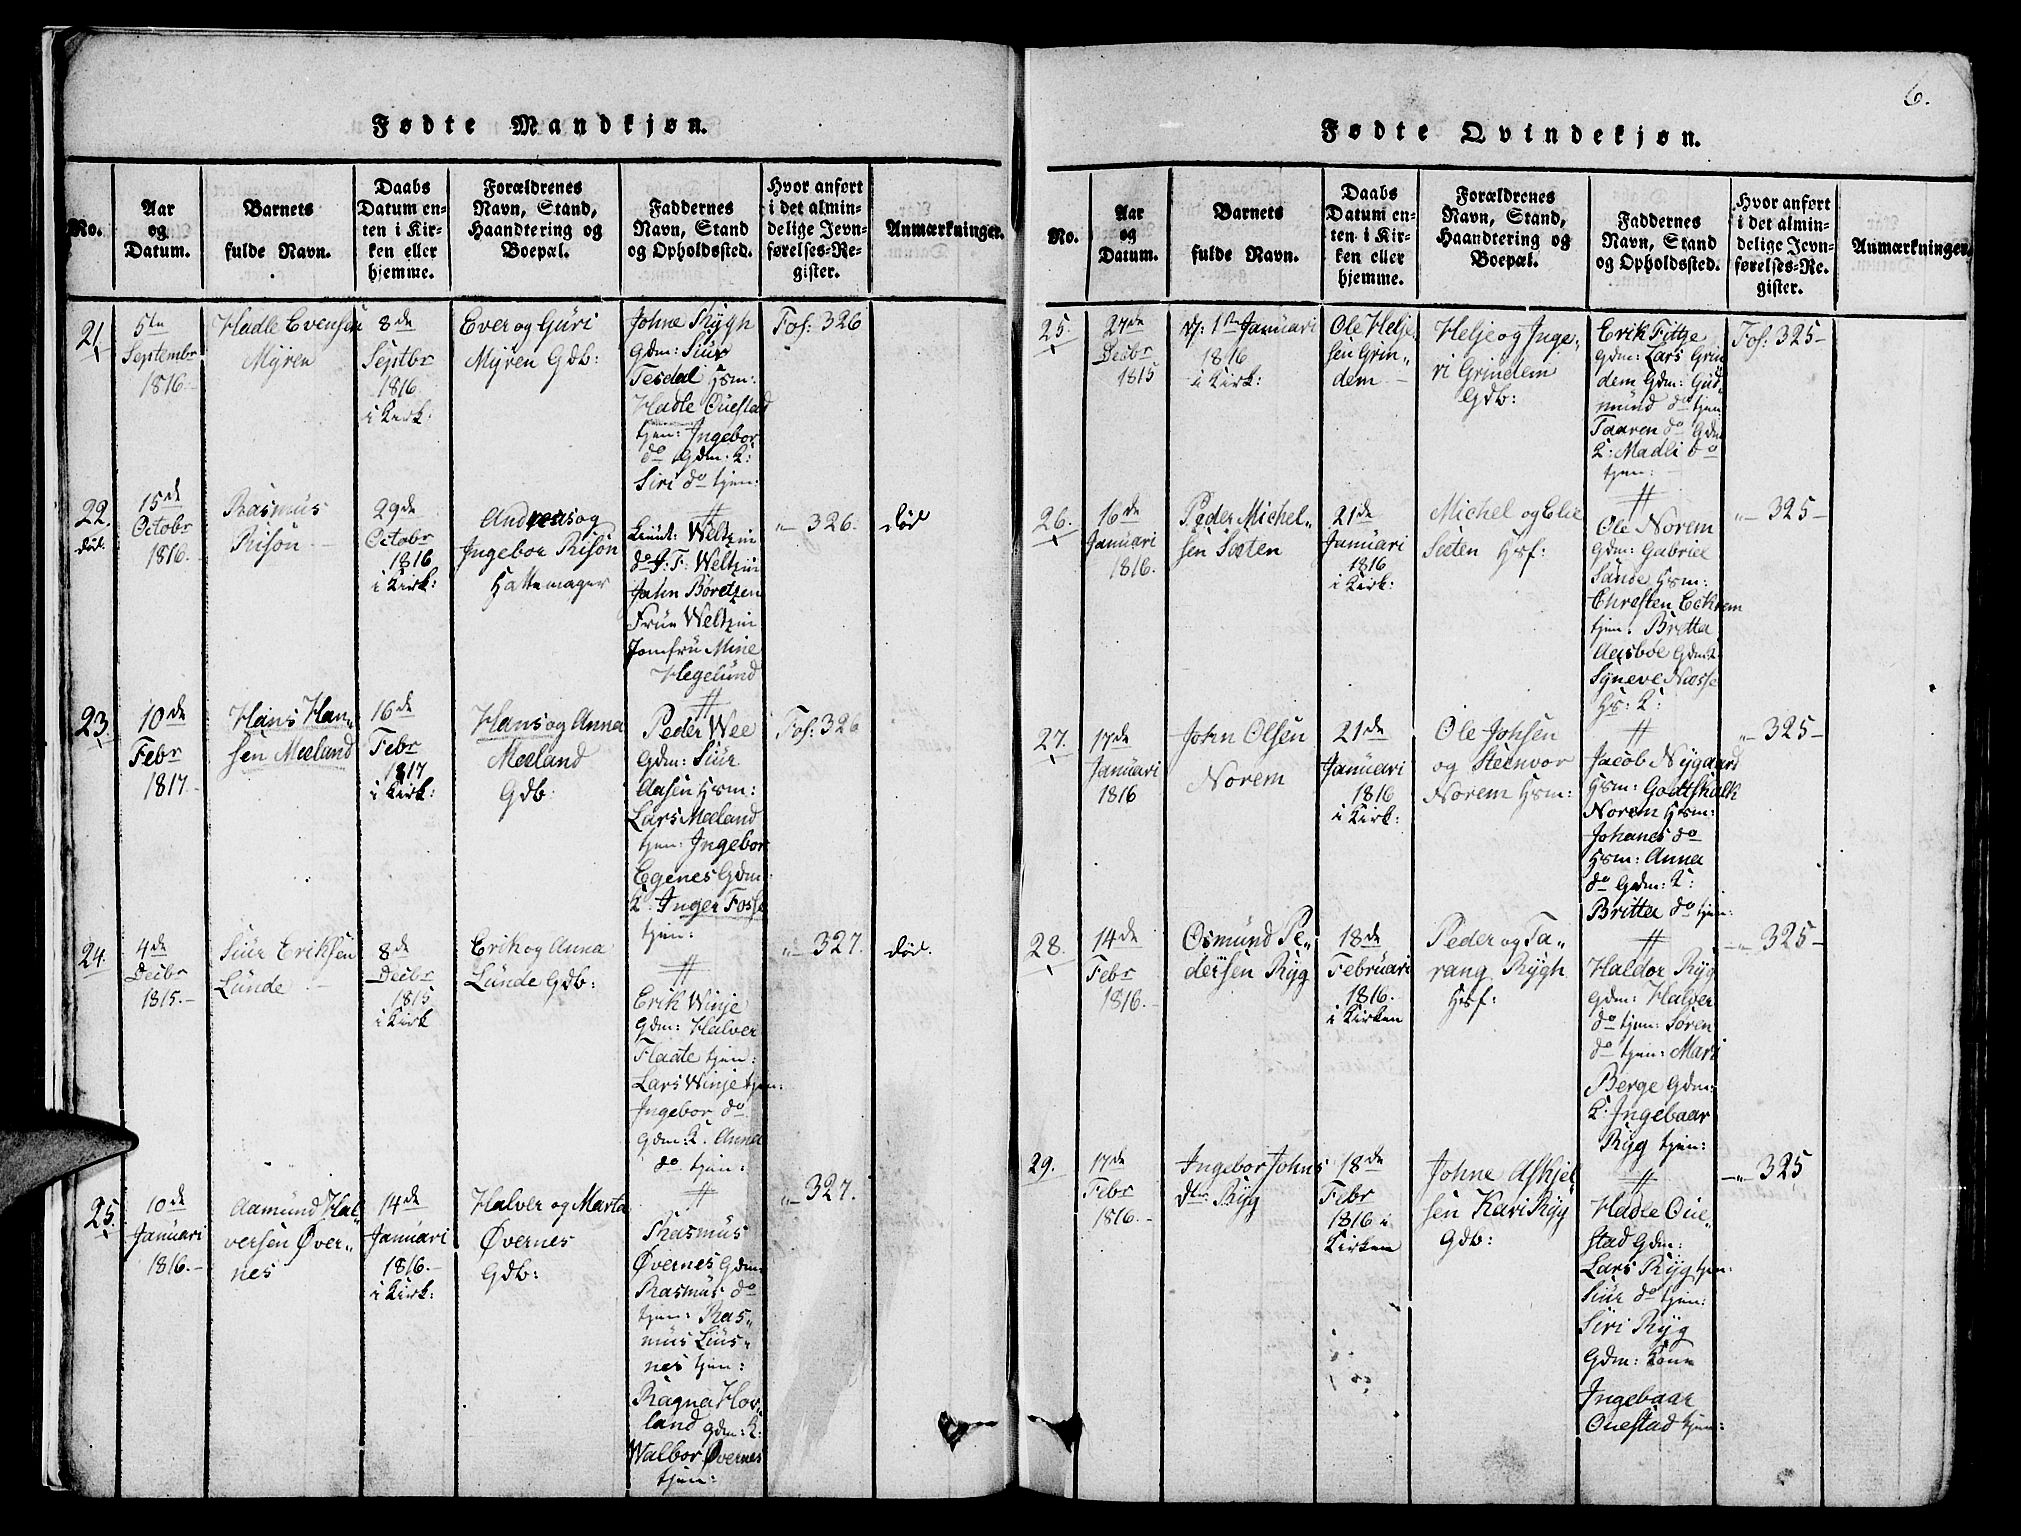 Fødte Mandkjøn.
No.
Aar
og
Datum.
Barnets
fulde Navn.
Daabs
Datum en-
ten i Kir-
ken eller
hjemme.
Forældrenes
Navn, Stand,
Haandtering og
Boepæl.
Faddernes
Navn, Stand
og Opholdssted.
Hvor anført
i det almin-
delige Jevn-
førelses-Re-
gister.
Anmærkninger.
21
5te
Septembr
1816.-
Hadle Evensen
Myren
8de
Septbr
1816
i Kirk:
Even og Guri
Myren Gdb:
Johne Rygh
Gdm: Siur
Tesdal Hsm:
Hadle Ouestad
tjen: Ingebor
do Gdm: K:
Siri do tjen:
Fol: 326
22.
død.
15de
Octobr
1816.
Rasmus
Risøn
29de
Octobr
1816
i Kirk:
Andreas og
Ingebor Risøn
Hattemager
Weltzin
do F: Weltzin
Jahn Børetzen
Frue Weltzin
Jomfru Mine
Hegelund
"- 326.
død
23
10de
Febr
1817-
Hans Han-
sen Meeland
16de
Febr
1817
i Kirk:
Hans og Anna
Meeland
Gdb:
Peder Wee
Gdm: Siur
Aasen Hsm:
Lars Meeland
tjen: Ingebor
Egenes Gdm:
K: Inger Fosse
tjen:
Fol: 326
24.
4de
Decbr
1815.-
Siur Eriksen
Lunde
8de
Decbr
1815
i Kirk
Erik og Anna
Lunde Gdb:
Erik Winje
Gdm: Halver
Flaate tjen:
Lars Winje tjen:
Ingebor do
gdm: K. Anna
do tjen:
"- 327.
død.
25.
10de
Januari
1816.-
Aamund Hal-
versen Øver-
nes
14de
Januari
1816.-
i Kirk:
Halver og Marta
Øvernes
Gdb:
Rasmus
Øvernes Gdm:
Rasmus do
tjen: Ras-
mus Lius-
nes tjen:
Ragna Hov-
land gdm: K:
Walbor Øvernes
tjen:
"- 327.
6.
Fødte Qvindekjøn.
No.
Aar
og
Datum.
Barnets
fulde Navn.
Daabs
Datum en-
ten i Kir-
ken eller
hjemme.
Forældrenes
Navn, Stand,
Haandtering og
Boepæl.
Faddernes
Navn, Stand
og Opholdssted.
Hvor anført
i det almin-
delige Jevn-
førelses-Re-
gister.
Anmærkninger.
25.
27de
Decbr
1815
1te Januari
1816
i Kirk:
Ole Helje-
sen Grin-
dem
Helje og Inge-
ri Grindem
Gdb:
Erik Fitje
Gdm: Lars Grin
dem Gdm: Gud-
mund do tjen:
Taaren do Gdm:
K: Madli do
tjen:
Fol: 325-
26.
16de
Januari
1816.
Peder Michel-
sen Sæten
21de
Januari
1816
i Kirk:
Michel og Elie
Sæten Hsf:
Ole Norem
Gdm: Gabriel
Sande Hsm:
Chresten Eikrem
tjen: Britta
Aasbøe Gdm: K
Syneve Næsse
Hs: K:
"- 325-
27.
17de
Januari
1816
John Olsen
Norem
21de
Januari
1816
i Kirk:
Ole Johsen
og Steinvor
Norem Hsm:
Jacob Nygaard
Hsm: Godtskalk
Norem Hsm:
Johanes do
Hsm: Anna
do Gdm: K:
Britta do tjen:
"- 325-
28.
14de
Febr
1816.-
Osmund Pe-
dersen Ryg
18de
Februari
1816.
i Kirken
Peder og Ta-
rang Rygh
Hsf:
Haldor Ryg
Gdm: Halver
do tjen: Søren
do tjen: Mari
Berge Gdm:
K: Ingebaar
Ryg tjen:
"- 325-
29.
17de
Febr
1816.-
Ingebor Johns
dtr Ryg
18de
Febr
1816 i
Kirken
Johne Askjel-
sen Kari Ryg
Gdb:
Hadle Oue-
stad Gdm:
Lars Ryg tjen:
Siur do tjen:
Siri Ryg
Gdm: Kone
Ingebaar
Ouestad tjen:
-"- 325